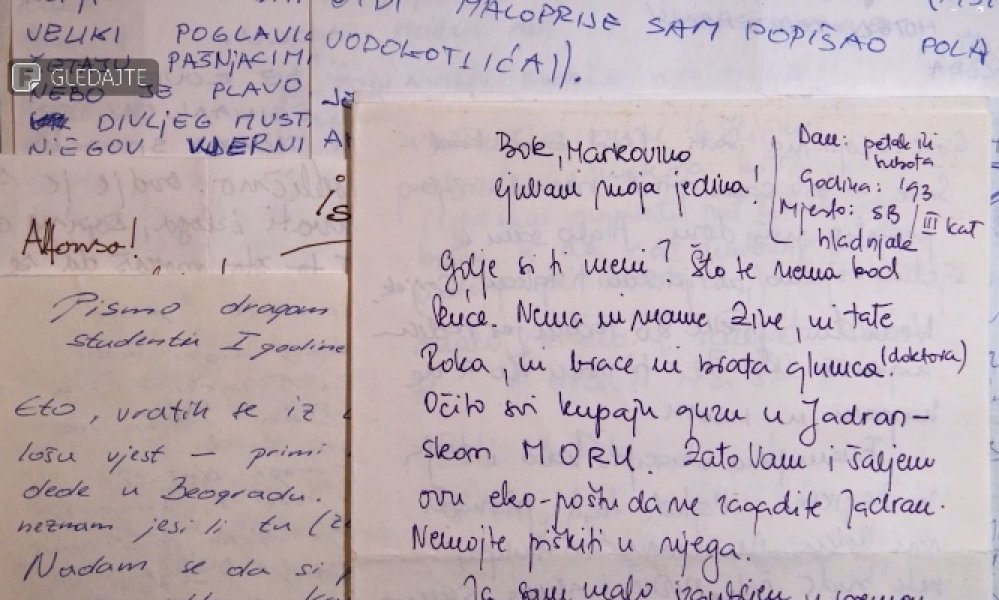 MALOPRIJE SAM POPISAO POLA
VODOKOTLIĆA)).
VELIKI POGLAVI
PAŠNJACIMA
GLEDAJTE
NEBO SE PLAVO
DIVLJEG MUST
NJEGOV VJERNI
Alfonso!
Pismo dragom
studentu I godine
Eto, vratih se iz
lošu vjest – primi
dede u Beogradu.
neznam jesi li tu
Nadam se da si
Bok, Markovino
ljubavi moja jedina!
Dan: petak ili
subota
Godina: '93
Mjesto: SB / III kat
hladnjak
Gdje si ti meni? Što te nema kod
kuće. Nema ni mame Žive, ni tate
Roka, ni brace ni brata glumca. (doktora)
Očito svi kupaju guzu u Jadran–
skom MORU. Zato Vam i šaljem
ovu eko-poštu da ne zagadite Jadran.
Nemojte piškiti u njega.
Ja sam malo